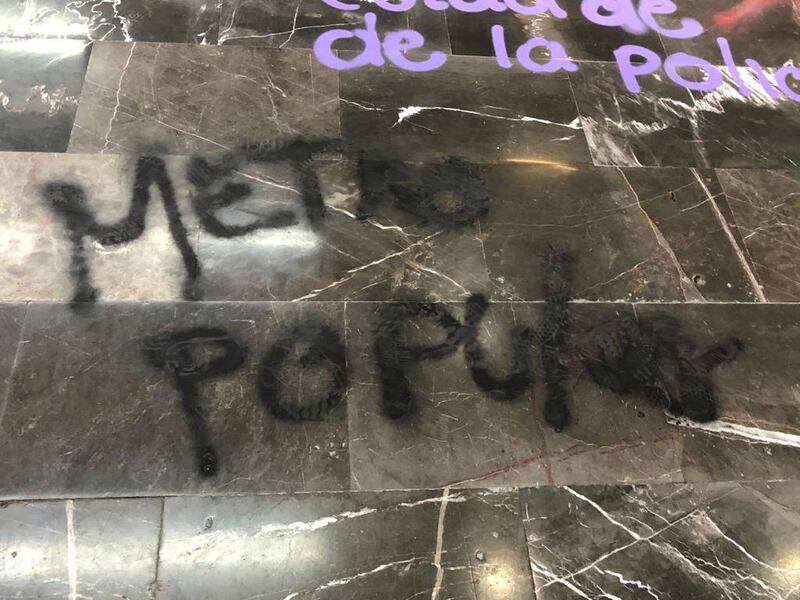 de
de la polic
METRO
POPUlar